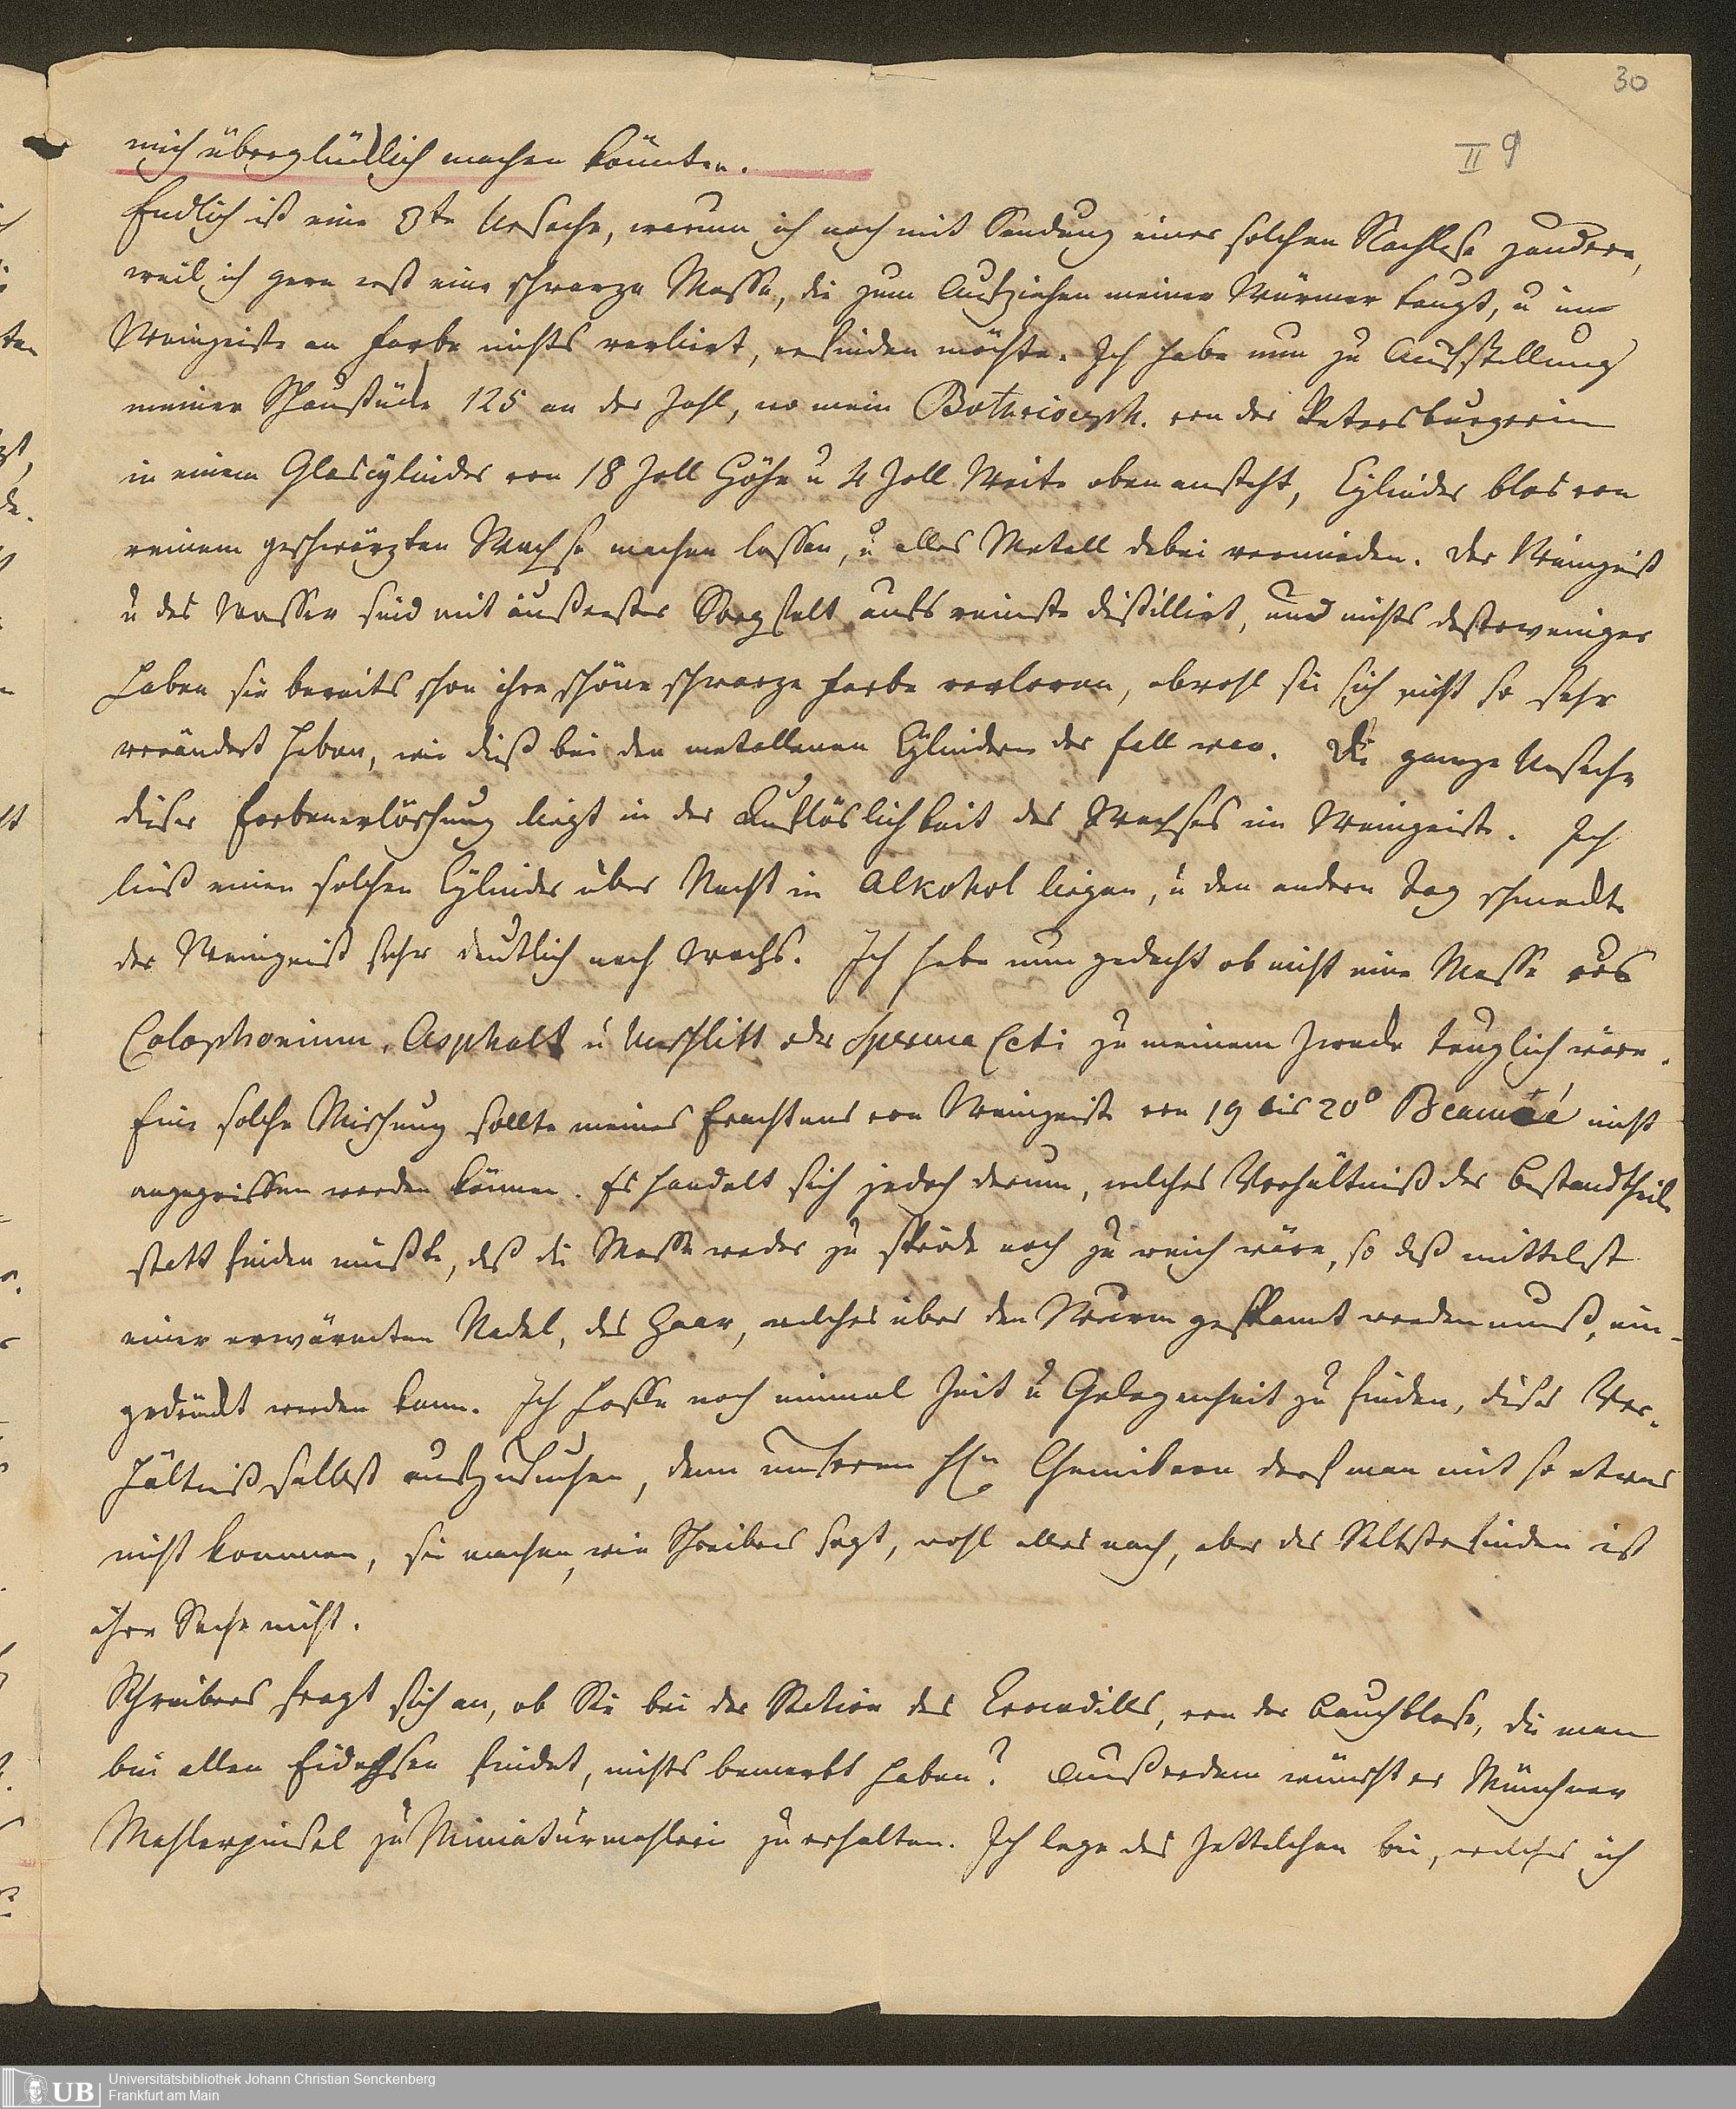 30
II 9
mich überglücklich machen könnten.
Endlich ist eine 3te Ursache, warum ich noch mit Sendung einer solchen Nachlese zaudere,
weil ich gern erst eine schwarze Masse, die zum Aufziehen meiner Würmer taugt, u im
Weingeiste an Farbe nichts verliert, erfinden möchte. Ich habe nun zu Aufstellung
meiner Schaustücke 125 an der Zahl, wo mein Bothrioceph. von der Petersburgerin
in einem Glascylinder von 18 Zoll Höhe u 4 Zoll Weite oben ansteht, Cylinder blos von
reinem geschwärzten Wachse machen lassen, u alles Metall dabei vermieden. Der Weingeist
u das Wasser sind mit äußerster Sorgfalt aufs reinste distillirt, und nichts destoweniger
haben sie bereits schon ihre schöne schwarze Farbe verloren, obwohl sie sich nicht so sehr
verändert haben, wie dieß bei den metallenen Cylindern der Fall war. Die ganze Ursache
dieser Farbenerlöschung liegt in der Auflöslichkeit des Wachses im Weingeiste. Ich
ließ einen solchen Cylinder über Nacht in Alkohol liegen, u den andern Tag schmeckte
der Weingeist sehr deutlich nach Wachs. Ich habe nun gedacht ob nicht eine Masse aus
Colophonium, Asphalt u Unschlitt oder Sperma Ceti zu meinem Zwecke tauglich wäre.
Eine solche Mischung sollte meines Erachtens von Weingeiste von 19 bis 20° Beaumé nicht
angegriffen werden können. Es handelt sich jedoch darum, welches Verhältniß der Bestandtheile
statt finden müßte, daß die Masse weder zu spröde noch zu weich wäre, so daß mittelst
einer erwärmten Nadel, das Haar, welches über den Wurm gespannt werden muß, ein-
gedrückt werden kann. Ich hoffe noch einmal Zeit u Gelegenheit zu finden, dieses Ver-
hältniß selbst auszusuchen, denn unseren Hn Chemikern darf man mit so etwas
nicht kommen, sie machen, wie Schreibers sagt, wohl alles nach, aber das Selbsterfinden ist
ihre Sache nicht.
Schreibers fragt sich an, ob Sie bei der Station des Crocodills, von der Bauchblase, die man
bei allen Eidechsen findet, nichts bemerkt haben? Außerdem wünscht er Münchner
Mahlerpinsel zu Miniaturmahlerei zu erhalten. Ich lege das Zettelchen bei, welches ich
UB Universitätsbibliothek Johann Christian Senckenberg
Frankfurt am Main